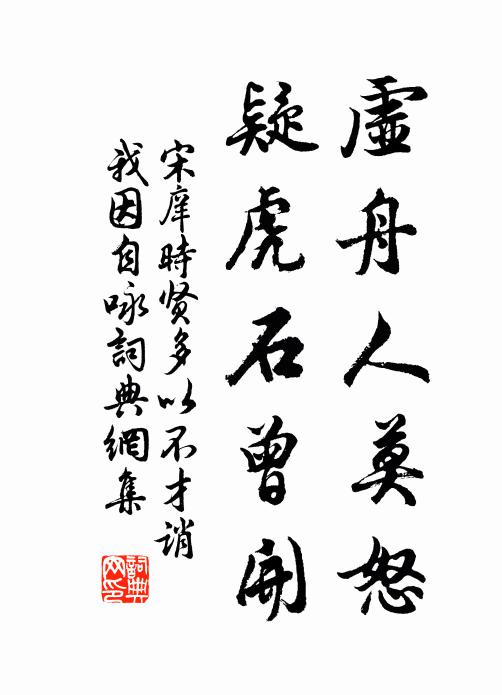 虛舟人莫怒
疑虎石曾開
宋庠時贤多以不才誚
我因自咏詞典網集
詞典網印